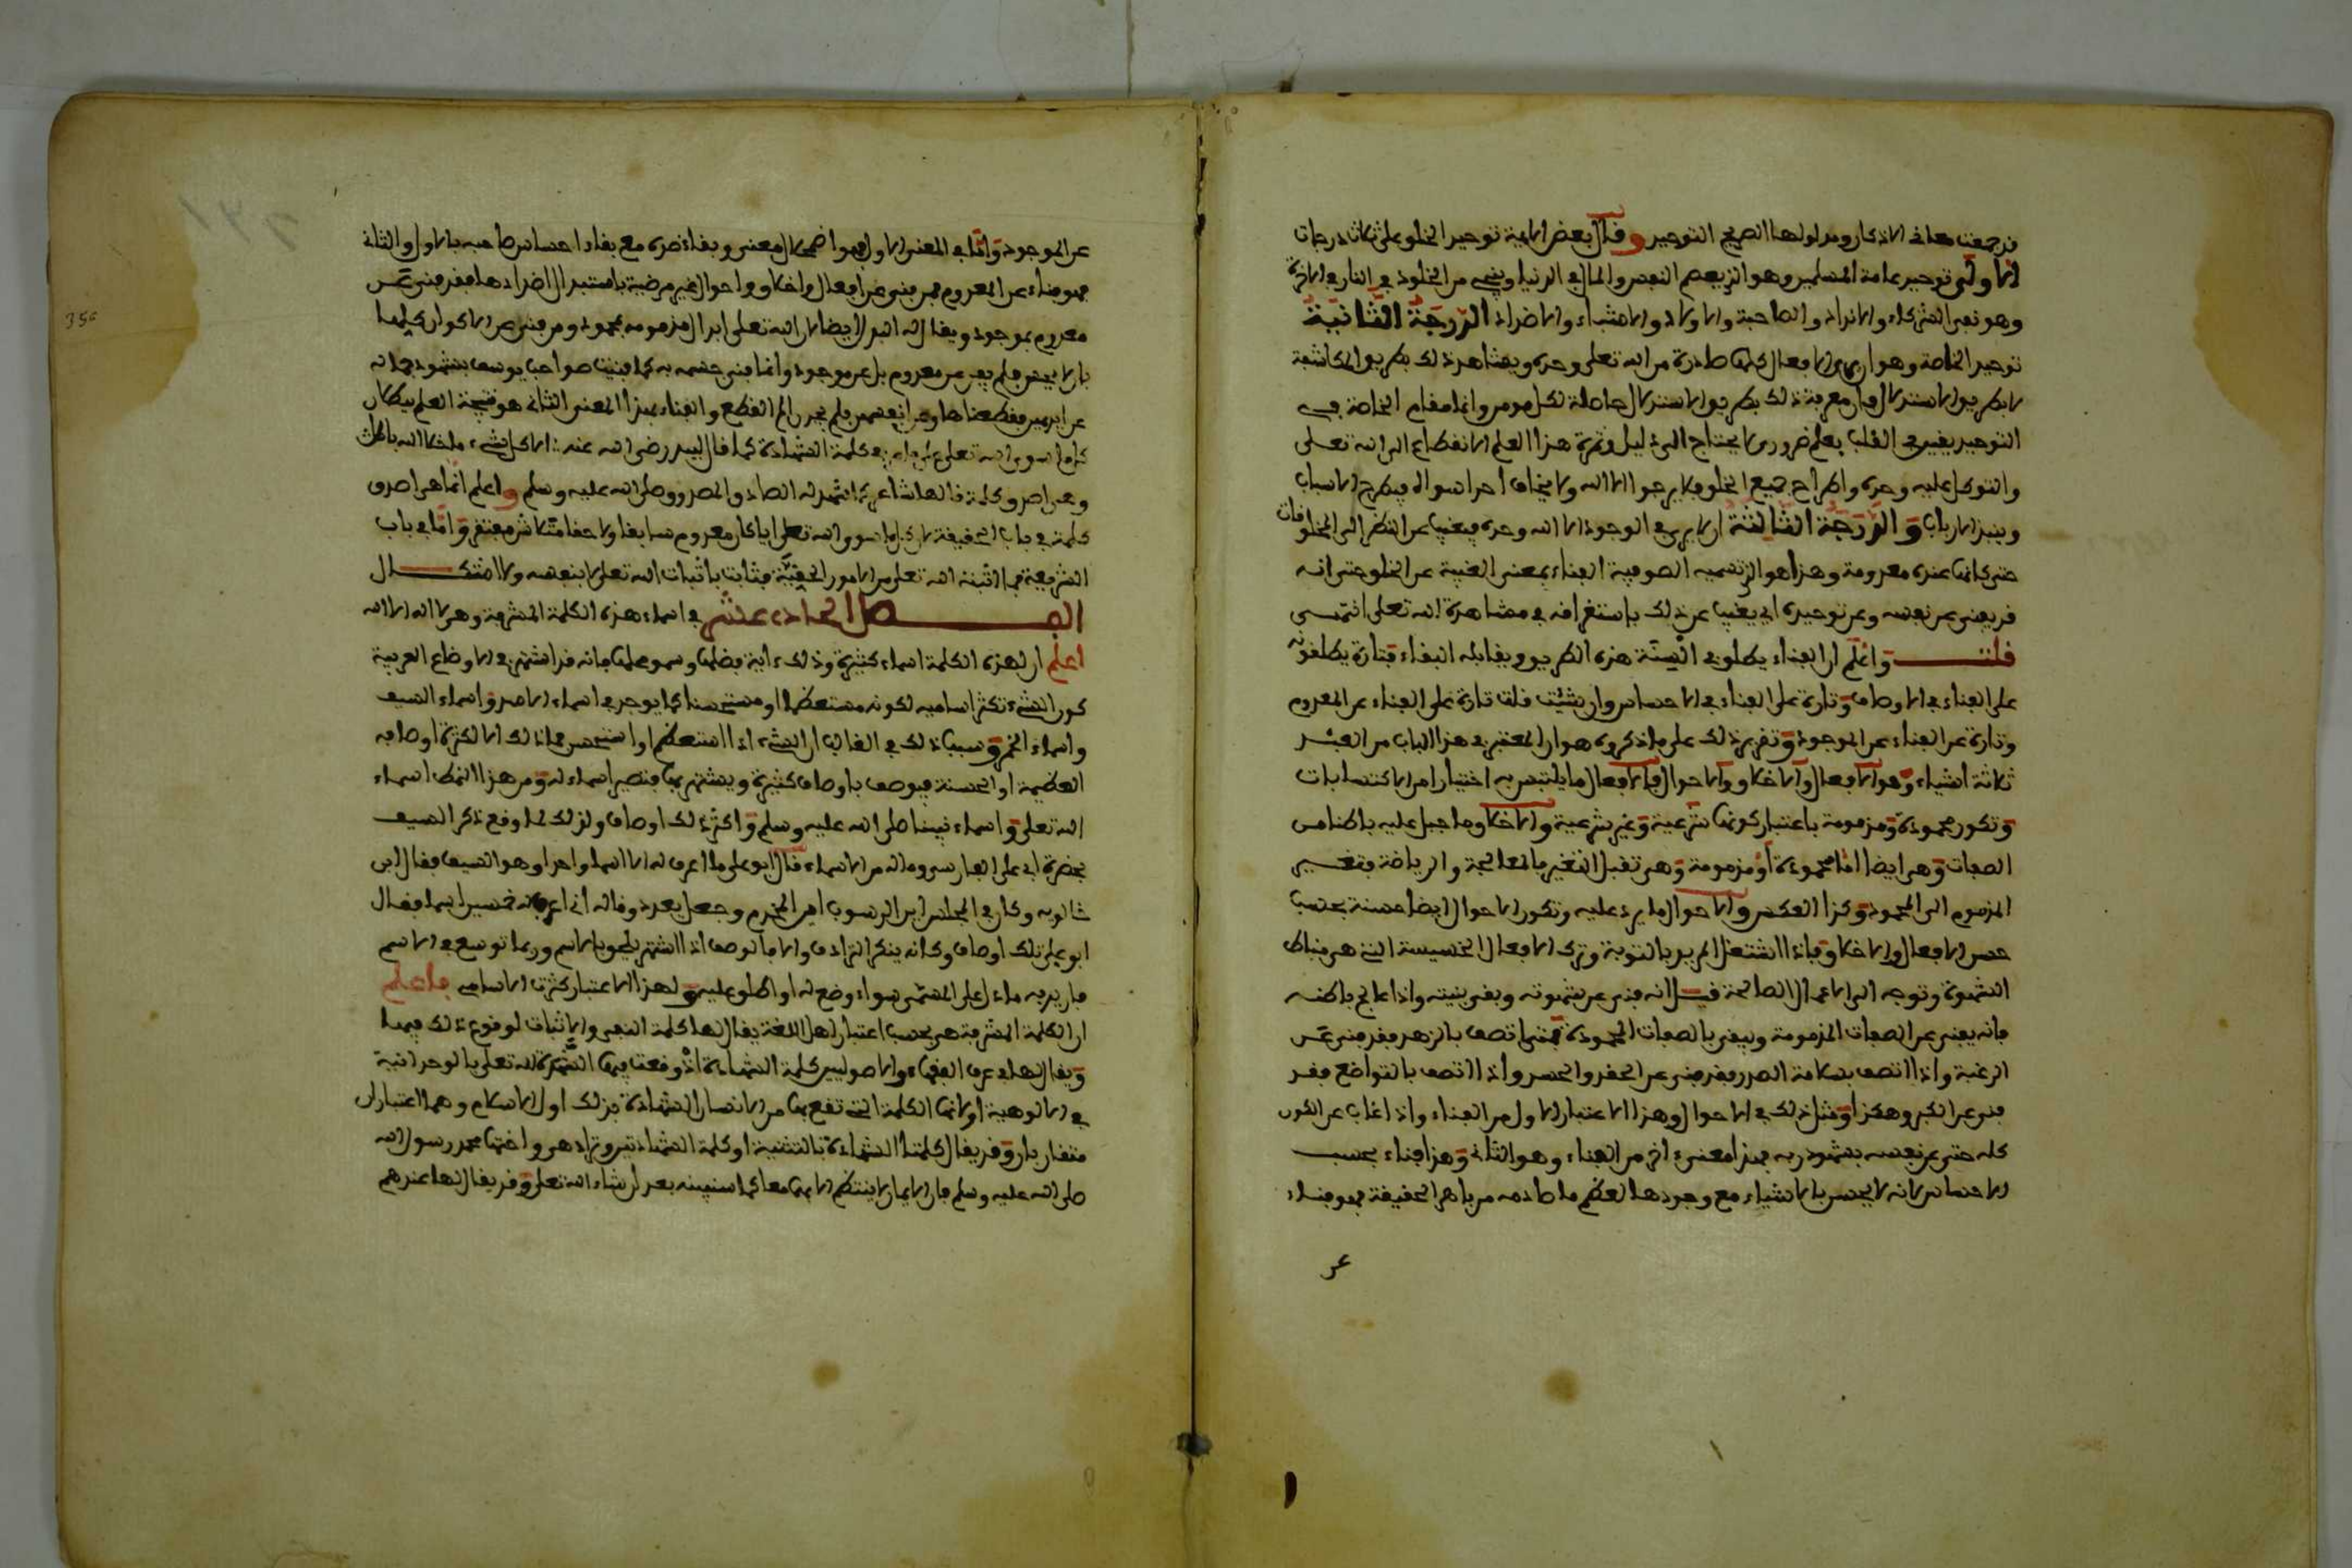 قد جمعت معاني الاذكار ومدلولها الصريح التوحيد وقال بعض الايمة توحيد الخلق على ثلاث درجات
الاولى توحيد عامة المسلمين وهو الذي يعصم النفس والمال في الدنيا وينجي من الخلود في النار في الاخرة
وهو نفي الشركاء والانداد والصاحبة والاولاد والاشباه والاضداد الدرجة الثانية
توحيد الخاصة وهو ان يرى الافعال كلها صادرة من الله تعلى وحده ويشاهد ذلك بطريق المكاشفة
لا بطريق الاستدلال فان معرفة ذلك بطريق الاستدلال حاصلة لكل مومن وانما مقام الخاصة في
التوحيد يقين في القلب بعلم ضروري لا يحتاج الى دليل وثمرة هذا العلم الانقطاع الى الله تعلى
والتوكل عليه وحده واطراح جميع الخلق فلا يرجوا الا الله ولا يخاف احدا سواه فيطرح الاسباب
وينبذ الارباب والدرجة الثالثة ان لا يرى في الوجود الا الله وحده فيغيب عن النظر الى المخلوقات
حتى كانها عنده معدومة وهذا هو الذي تسميه الصوفية الفناء بمعنى الغيبة عن الخلق حتى انه
قد يفنى عن نفسه وعن توحيده اي يغيب عن ذلك باستغراقه في مشاهدة الله تعلى انتهى
قلت واعلم ان الفناء يطلق في السنة هذه الطريق ويقابله البقاء فتارة يطلقونه
على الفناء في الاوصاف وتارة على الفناء في الاحساس وان شئت قلت تارة على الفناء عن المعدوم
وتارة عن الفناء عن الموجود وتقرير ذلك على ما ذكروه هو ان المعتبر في هذا الباب من العبد
ثلاثة اشياء وهو الافعال والاخلاق والاحوال فالافعال ما يلتبس به اختيارا من الاكتسابات
وتكون محمودة ومذمومة باعتبار كونها شرعية وغير شرعية والاخلاق ما جبل عليه باطنا من
الصفات وهي ايضا اما محمودة او مذمومة وهي تقبل التغيير بالمعالجة والرياضة وتغيير
المذموم الى المحمود وكذا العكس والاحوال ما يرد عليه وتكون الاحوال ايضا حسنة بحسب
حسن الافعال والاخلاق فاذا اشتغل المريد بالتوبة وترك الافعال الخسيسة التي هي مناط
الشهوة وتوجه الى الاعمال الصالحة قيل انه فنى عن شهوته وبقى بنيته واذا عالج باطنه
فانه يفنى عن الصفات المذمومة ويبقى بالصفات المحمودة فمتى اتصف بالزهد فقد فنى عن
الرغبة واذا اتصف بسلامة الصدر فقد فنى عن الحقد والحسد واذا اتصف بالتواضع فقد
فنى عن الكبر وهكذا ومثل ذلك في الاحوال وهذا الاعتبار الاول من الفناء واذا غاب عن الكون
كله حتى عن نفسه بشهود ربه فهذا معنى اخر من الفناء وهو الثاني وهذا فناء بحسب
الاحساس لانه لا يحس بالاشياء مع وجودها لعظم ما صادمه من باهر الحقيقة فهو فناء
عن
عن الموجود واما في المعنى الاول فهو اضمحلال معنى وبقاء ضده مع بقاء احساس صاحبه بالاول والثاني
فهو فناء عن المعدوم فمن فنى عن افعال واخلاق واحوال غير مرضية باستبدال اضدادها فقد فنى عن
معدوم بموجود ويقال له البدل ايضا لان الله تعلى ابدل مذمومه بمحمود ومن فنى عن الاكوان كلها
بان لا يحس فلم يفن عن معدوم بل عن موجود وانما فنى حسه به كما فنيت صواحب يوسف بشهود جماله
عن ايديهن فقطعنها وعن انفسهن فلم يجدن الم القطع والفناء بهذا المعنى الثاني هو نتيجة العلم ببطلان
كل ما سوى الله تعلى على ما في كلمة الشهادة كما قال لبيد رضي الله عنه الا كل شيء ما خلا الله باطل
وهي اصدق كلمة قالها شاعر كما شهد له الصادق المصدوق صلى الله عليه وسلم واعلم انما هي اصدق
كلمة في باب الحقيقة لان كل ما سوى الله تعلى اياكان معدوم سابقا ولاحقا متلاش مفتقر واما في باب
الشريعة فما اثبته الله تعلى من الامور الحقية فثابت باثبات الله تعلى لا بنفسه ولا اشكال
الفصل الحادي عشر في اسماء هذه الكلمة المشرفة وهي لا اله الا الله
اعلم ان لهذه الكلمة اسماء كثيرة وذلك ءاية فضلها وسمو علمها فانه قد اشتهر في الاوضاع العربية
كون الشيء تكثر اساميه لكونه مستعظما او مستحسنا كما يوجد في اسماء الاسد واسماء السيف
واسماء الخمر وسبب ذلك في الغالب ان الشيء اذا استعظم او استحسن فما ذلك الا لكثرة اوصافه
العظيمة او الحسنة فيوصف باوصاف كثيرة ويشتهر بها فتصير اسماء له ومن هذا النمط اسماء
الله تعلى واسماء نبينا صلى الله عليه وسلم واكثر ذلك اوصاف ولذلك لما وقع ذكر السيف
بحضرة ابي علي الفارسي وما له من الاسماء قال ابو علي ما اعرف له الا اسما واحدا وهو السيف فقال ابن
خالويه وكان في المجلس اين الرسوب اين المخذم وجعل يعدد وقال له اني اعرف له خمسين اسما فقال
ابو علي تلك اوصاف وكانه ينكر الترادف والا فالوصف اذا اشتهر يلحق بالاسم وربما توسع في الاسم
فاريد به ما دل على المسمى سواء وضع له او اطلق عليه ولهذا الاعتبار كثرت الاسامي فاعلم
ان الكلمة المشرفة هي بحسب اعتبار اهل اللغة يقال لها كلمة النفي والاثبات لوقوع ذلك فيها
ويقال لها في عرف الفقهاء والاصوليين كلمة الشهادة اذ وقعت فيها الشهادة لله تعلى بالوحدانية
في الالوهية او لانها الكلمة التي تقع بها من الانسان الشهادة بذلك اول الاسلام وهما اعتباران
متقاربان وقد يقال كلمتا الشهادة بالتثنية او كلمة الشهادتين وتراد هي واختها محمد رسول الله
صلى الله عليه وسلم فان الايمان لا ينتظم الا بهما معا كما سنبينه بعد ان شاء الله تعلى وقد يقال لها عندهم
356